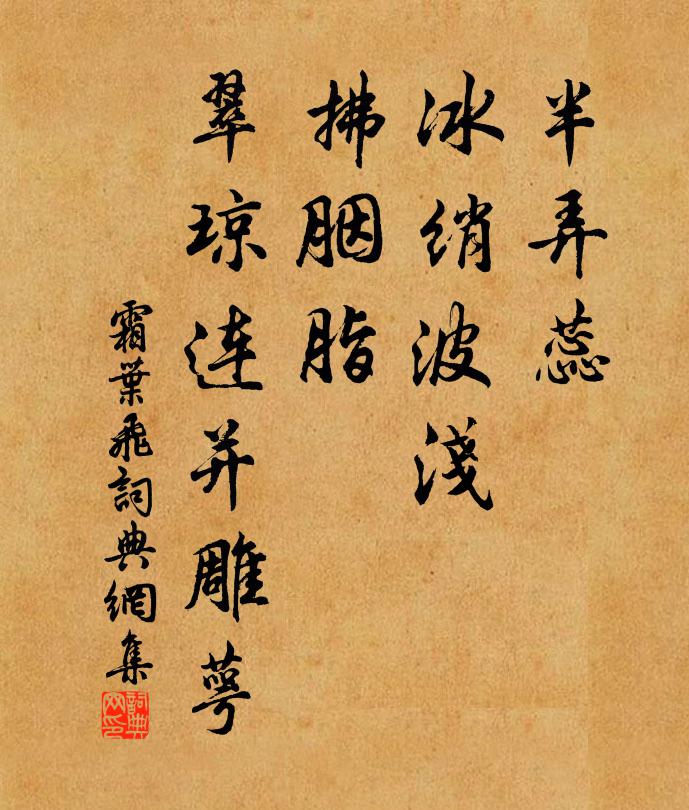 半弄蕊
冰绡波淺
拂胭脂
翠琼连并雕萼
霜葉飛詞典網集
詞典
网印